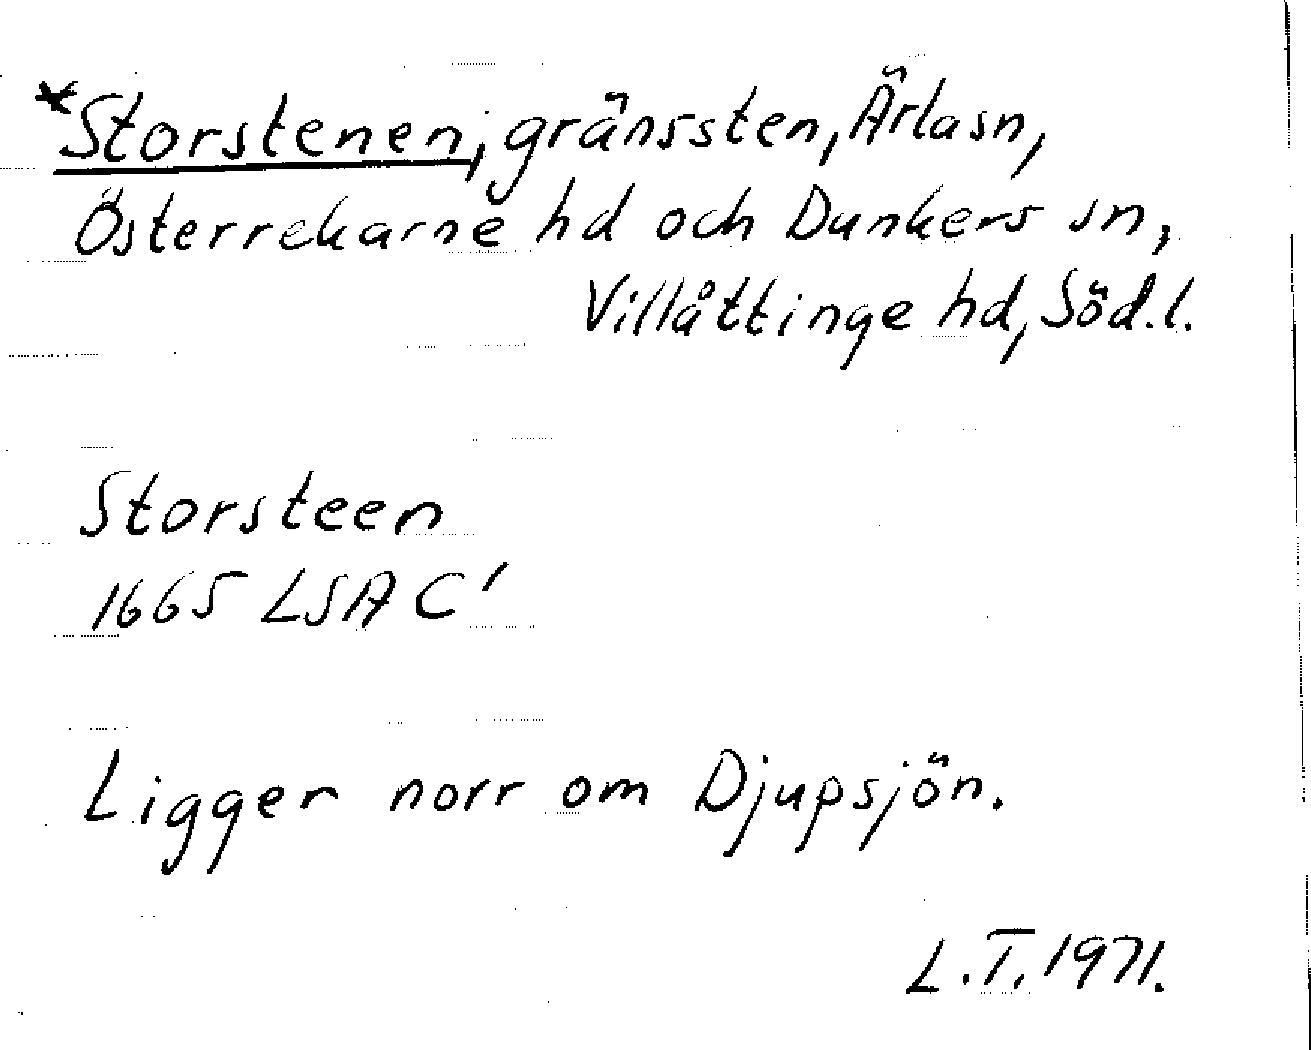 *Storstenen, gränssten, Ärla sn,
Österrekarne hd och Dunkers sn,
Villåttinge hd, Söd.l.
Storsteen
1665 LSA C'
Ligger norr om Djupsjön.
L.T. 1971.